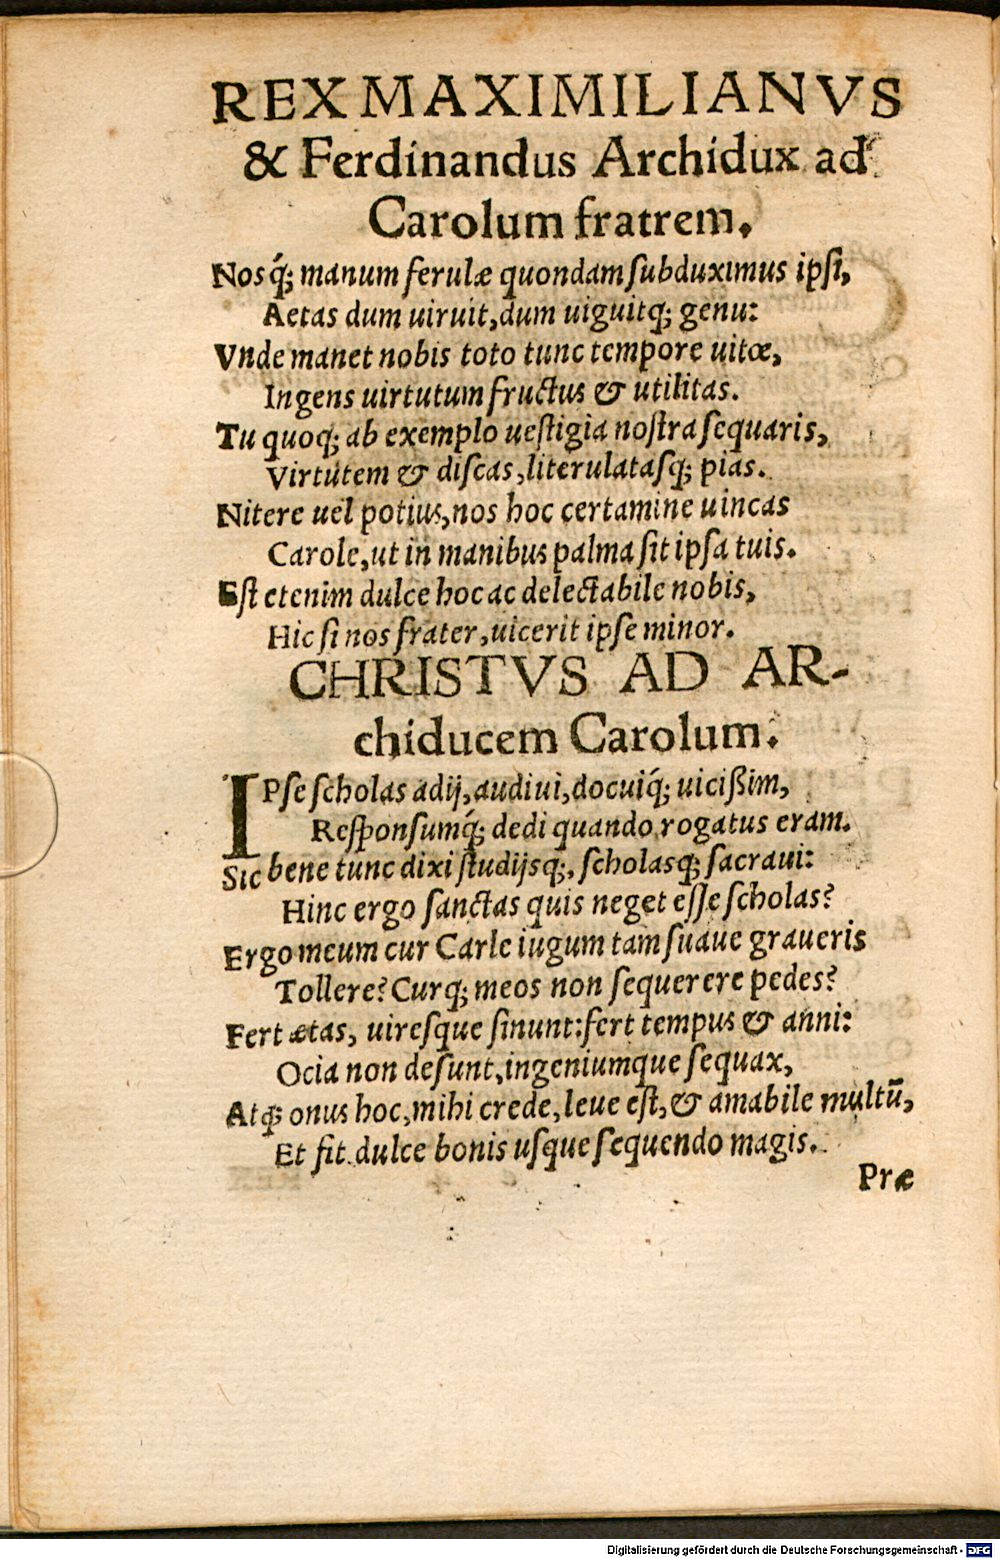 REX MAXIMILIANVS
& Ferdinandus Archidux ad
Carolum fratrem.
Nos q́; manum ferulæ quondam ſubduximus ipſi,
Aetas dum uiruit, dum uiguitq; genu:
Vnde manet nobis toto tunc tempore uitæ,
Ingens uirtutum fructus & utilitas.
Tu quoq; ab exemplo ueſtigia noſtra ſequaris,
Virtutem & diſcas, literulatasq; pias.
Nitere uel potius, nos hoc certamine uincas
Carole, ut in manibus palma ſit ipſa tuis.
Eſt etenim dulce hoc ac delectabile nobis,
Hic ſi nos frater, uicerit ipſe minor.
CHRISTVS AD AR-
chiducem Carolum.
IPſe ſcholas adij, audiui, docuiq́; uicißim,
Reſponſumq́; dedi quando rogatus eram.
Sic bene tunc dixi ſtudijsq;, ſcholasq; ſacraui:
Hinc ergo ſanctas quis neget eſſe ſcholas?
Ergo meum cur Carle iugum tam ſuaue graueris
Tollere? Curq; meos non ſequerere pedes?
Fert ætas, uireſque ſinunt: fert tempus & anni:
Ocia non deſunt, ingeniumque ſequax,
Atq; onus hoc, mihi crede, leue eſt, & amabile multū,
Et fit dulce bonis uſque ſequendo magis.
Præ
Digitalisierung gefördert durch die Deutsche Forschungsgemeinschaft - DFG